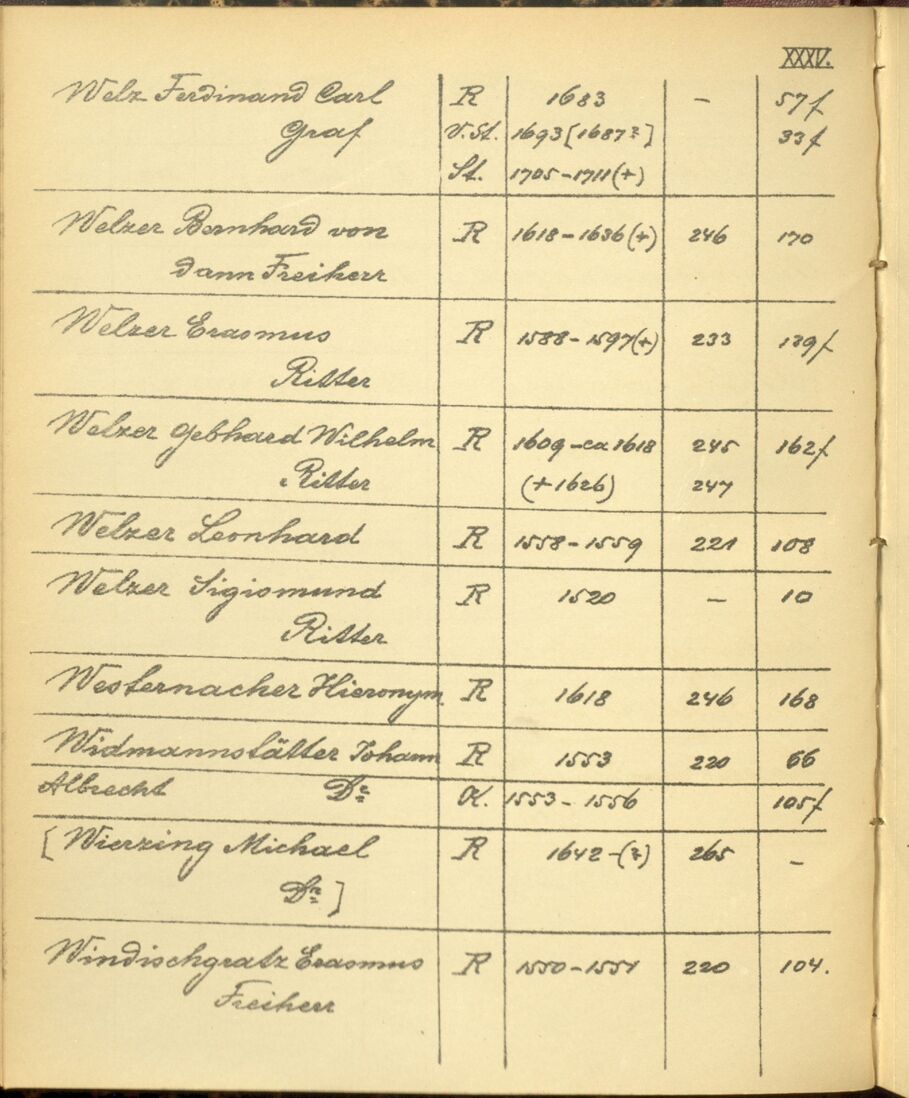 XXXV.
Welz Ferdinand Carl R 1683 – 57f
Graf V.St. 1693 [1687?] 33f
St. 1705–1711(+)
Welzer Bernhard von R 1618–1636(+) 246 170
dann Freiherr
Welzer Erasmus R 1588–1597(+) 233 139f
Ritter
Welzer Gebhard Wilhelm R 1609–ca 1618 245 162f
Ritter (+1626) 247
Welzer Leonhard R 1558–1559 221 108
Welzer Sigismund R 1520 – 10
Ritter
Westernacher Hieronym. R 1618 246 168
Widmannstätter Johann R 1553 220 66
Albrecht Dr. K. 1553–1556 105f
[Wierzing Michael R 1642–(?) 265 –
Dr.]
Windischgratz Erasmus R 1550–1551 220 104.
Freiherr